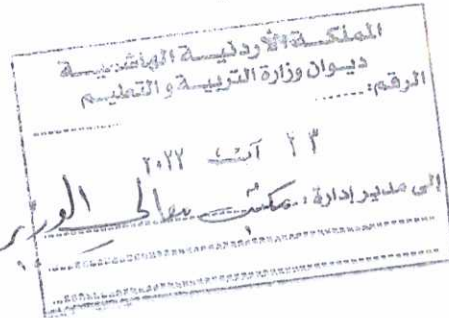 المملكة الأردنية الهاشمية
ديوان وزارة التربية والتعليم
الرقم: ..........
٢٣ آب ٢٠٢٢
إلى مدير إدارة: مكتب معالي الوزير